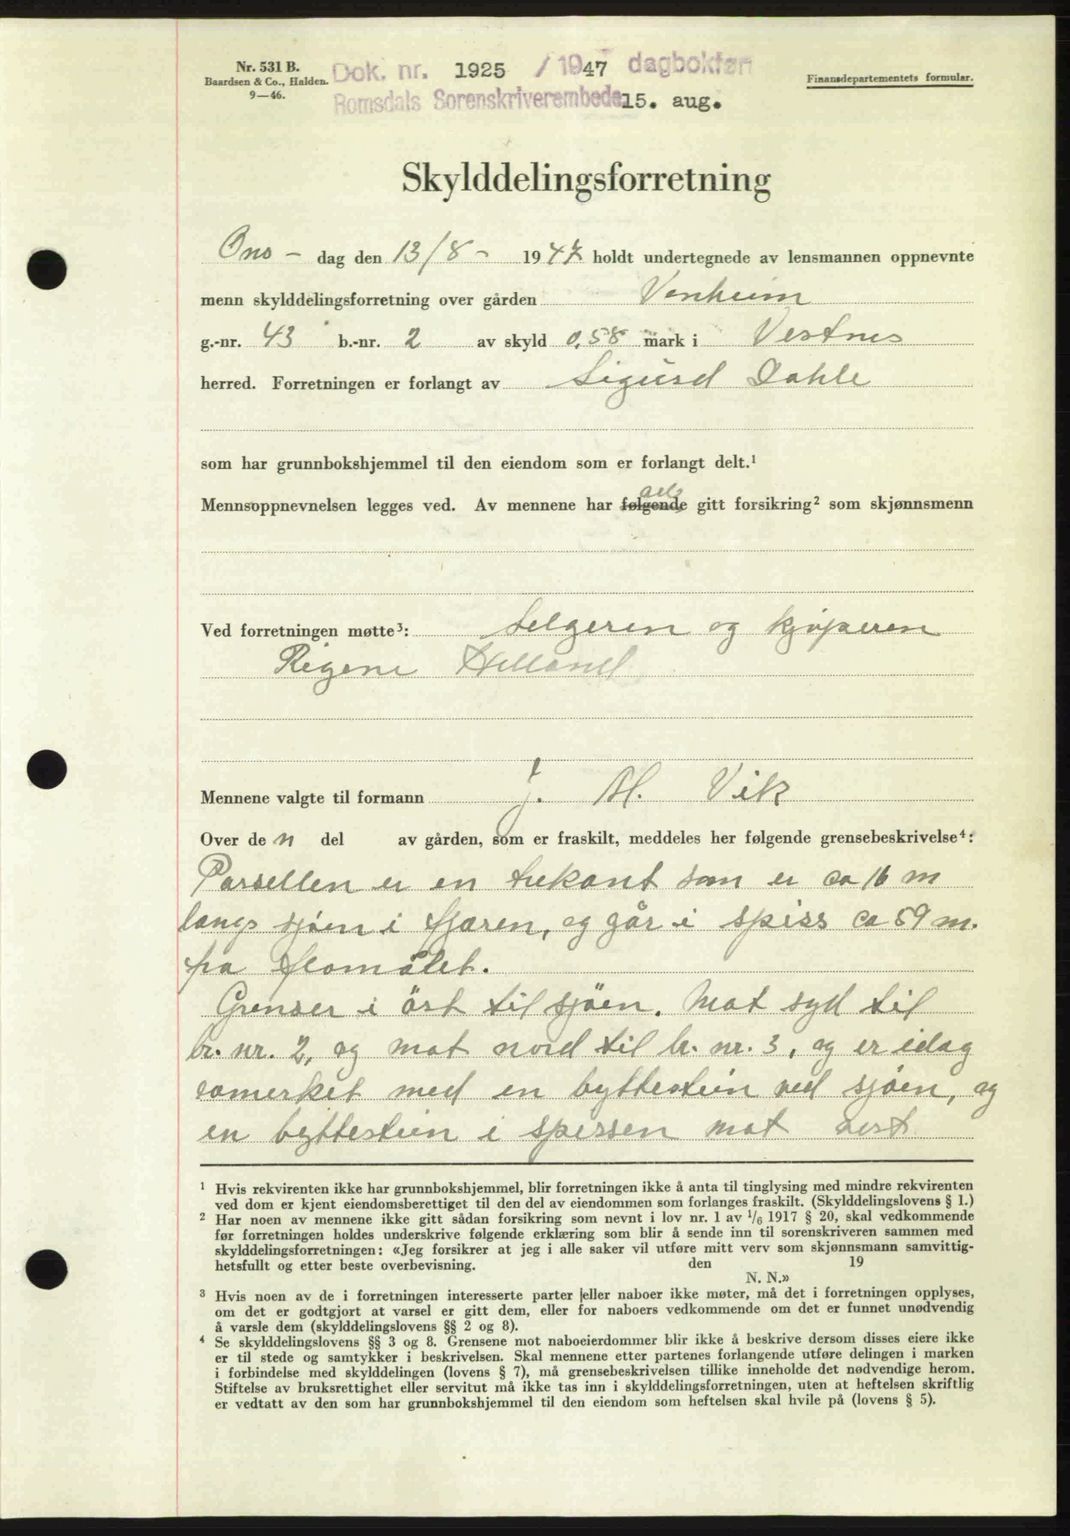 Nr. 531 B.
Baardsen & Co., Halden.
9—46.
Dok. nr. 1925 / 1947 dagboktøri
Romsdals Sorenskriverembede 15. aug.
Finansdepartementets formular.
Skylddelingsforretning
Ons- dag den 13/8 - 1947 holdt undertegnede av lensmannen oppnevnte
menn skylddelingsforretning over gården Venheim
g.-nr. 43 b.-nr. 2 av skyld 0,58 mark i Vestnes
herred. Forretningen er forlangt av Sigurd Dahle
som har grunnbokshjemmel til den eiendom som er forlangt delt.¹
Mennsoppnevnelsen legges ved. Av mennene har følgende alle gitt forsikring² som skjønnsmenn
Ved forretningen møtte³: Selgeren og kjøperen
Helland
Mennene valgte til formann J. M. Vik
Over de n del av gården, som er fraskilt, meddeles her følgende grensebeskrivelse⁴:
Parsellen er en trekant som er ca 16 m
langs sjøen i fjæren, og går i spiss ca 59 m.
fra flomålet.
Grenser i öst til sjöen. Mot syd til
br. nr. 2, og mot nord til br. nr. 3, og er idag
med en byttestein ved sjöen, og
en byttestein i spissen mot vest
¹ Hvis rekvirenten ikke har grunnbokshjemmel, blir forretningen ikke å anta til tinglysing med mindre rekvirenten
ved dom er kjent eiendomsberettiget til den del av eiendommen som forlanges fraskilt. (Skylddelingslovens § 1.)
² Har noen av mennene ikke gitt sådan forsikring som nevnt i lov nr. 1 av 1/6 1917 § 20, skal vedkommende
før forretningen holdes underskrive følgende erklæring som blir å sende inn til sorenskriveren sammen med
skylddelingsforretningen: «Jeg forsikrer at jeg i alle saker vil utføre mitt verv som skjønnsmann samvittig-
hetsfullt og etter beste overbevisning. den 19
N. N.»
³ Hvis noen av de i forretningen interesserte parter eller naboer ikke møter, må det i forretningen opplyses,
om det er godtgjort at varsel er gitt dem, eller for naboers vedkommende om det er funnet unødvendig
å varsle dem (skylddelingslovens §§ 2 og 8).
⁴ Se skylddelingslovens §§ 3 og 8. Grensene mot naboeierdommer blir ikke å beskrive dersom disses eiere ikke
er til stede og samtykker i beskrivelsen. Skal mennene etter partenes forlangende utføre delingen i marken
i forbindelse med skylddelingen (lovens § 7), må grensebeskrivelsen tillike inneholde det nødvendige herom.
Stiftelse av bruksrettighet eller servitut må ikke tas inn i skylddelingsforretningen, uten at heftelsen skriftlig
er vedtatt av den som har grunnbokshjemmel til den eiendom som heftelsen skal hvile på (lovens § 5).